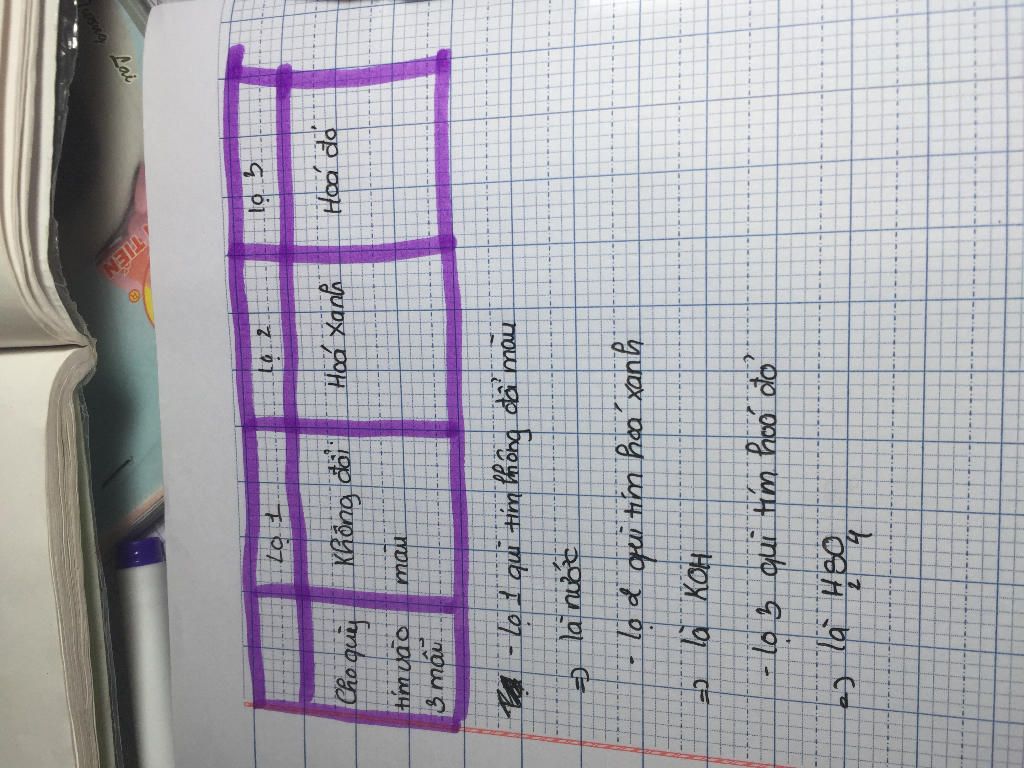 Lọ 1 lọ 2 lọ 3
Cho quỳ Không đổi Hoá xanh Hoá đỏ
tím vào màu
3 mẫu
- Lọ 1 quì tím không đổi màu
=> là nước
- lọ 2 quì tím hoá xanh
=> là KOH
- lọ 3 quì tím hoá đỏ
=> là H2SO4
Lai
TIẾN